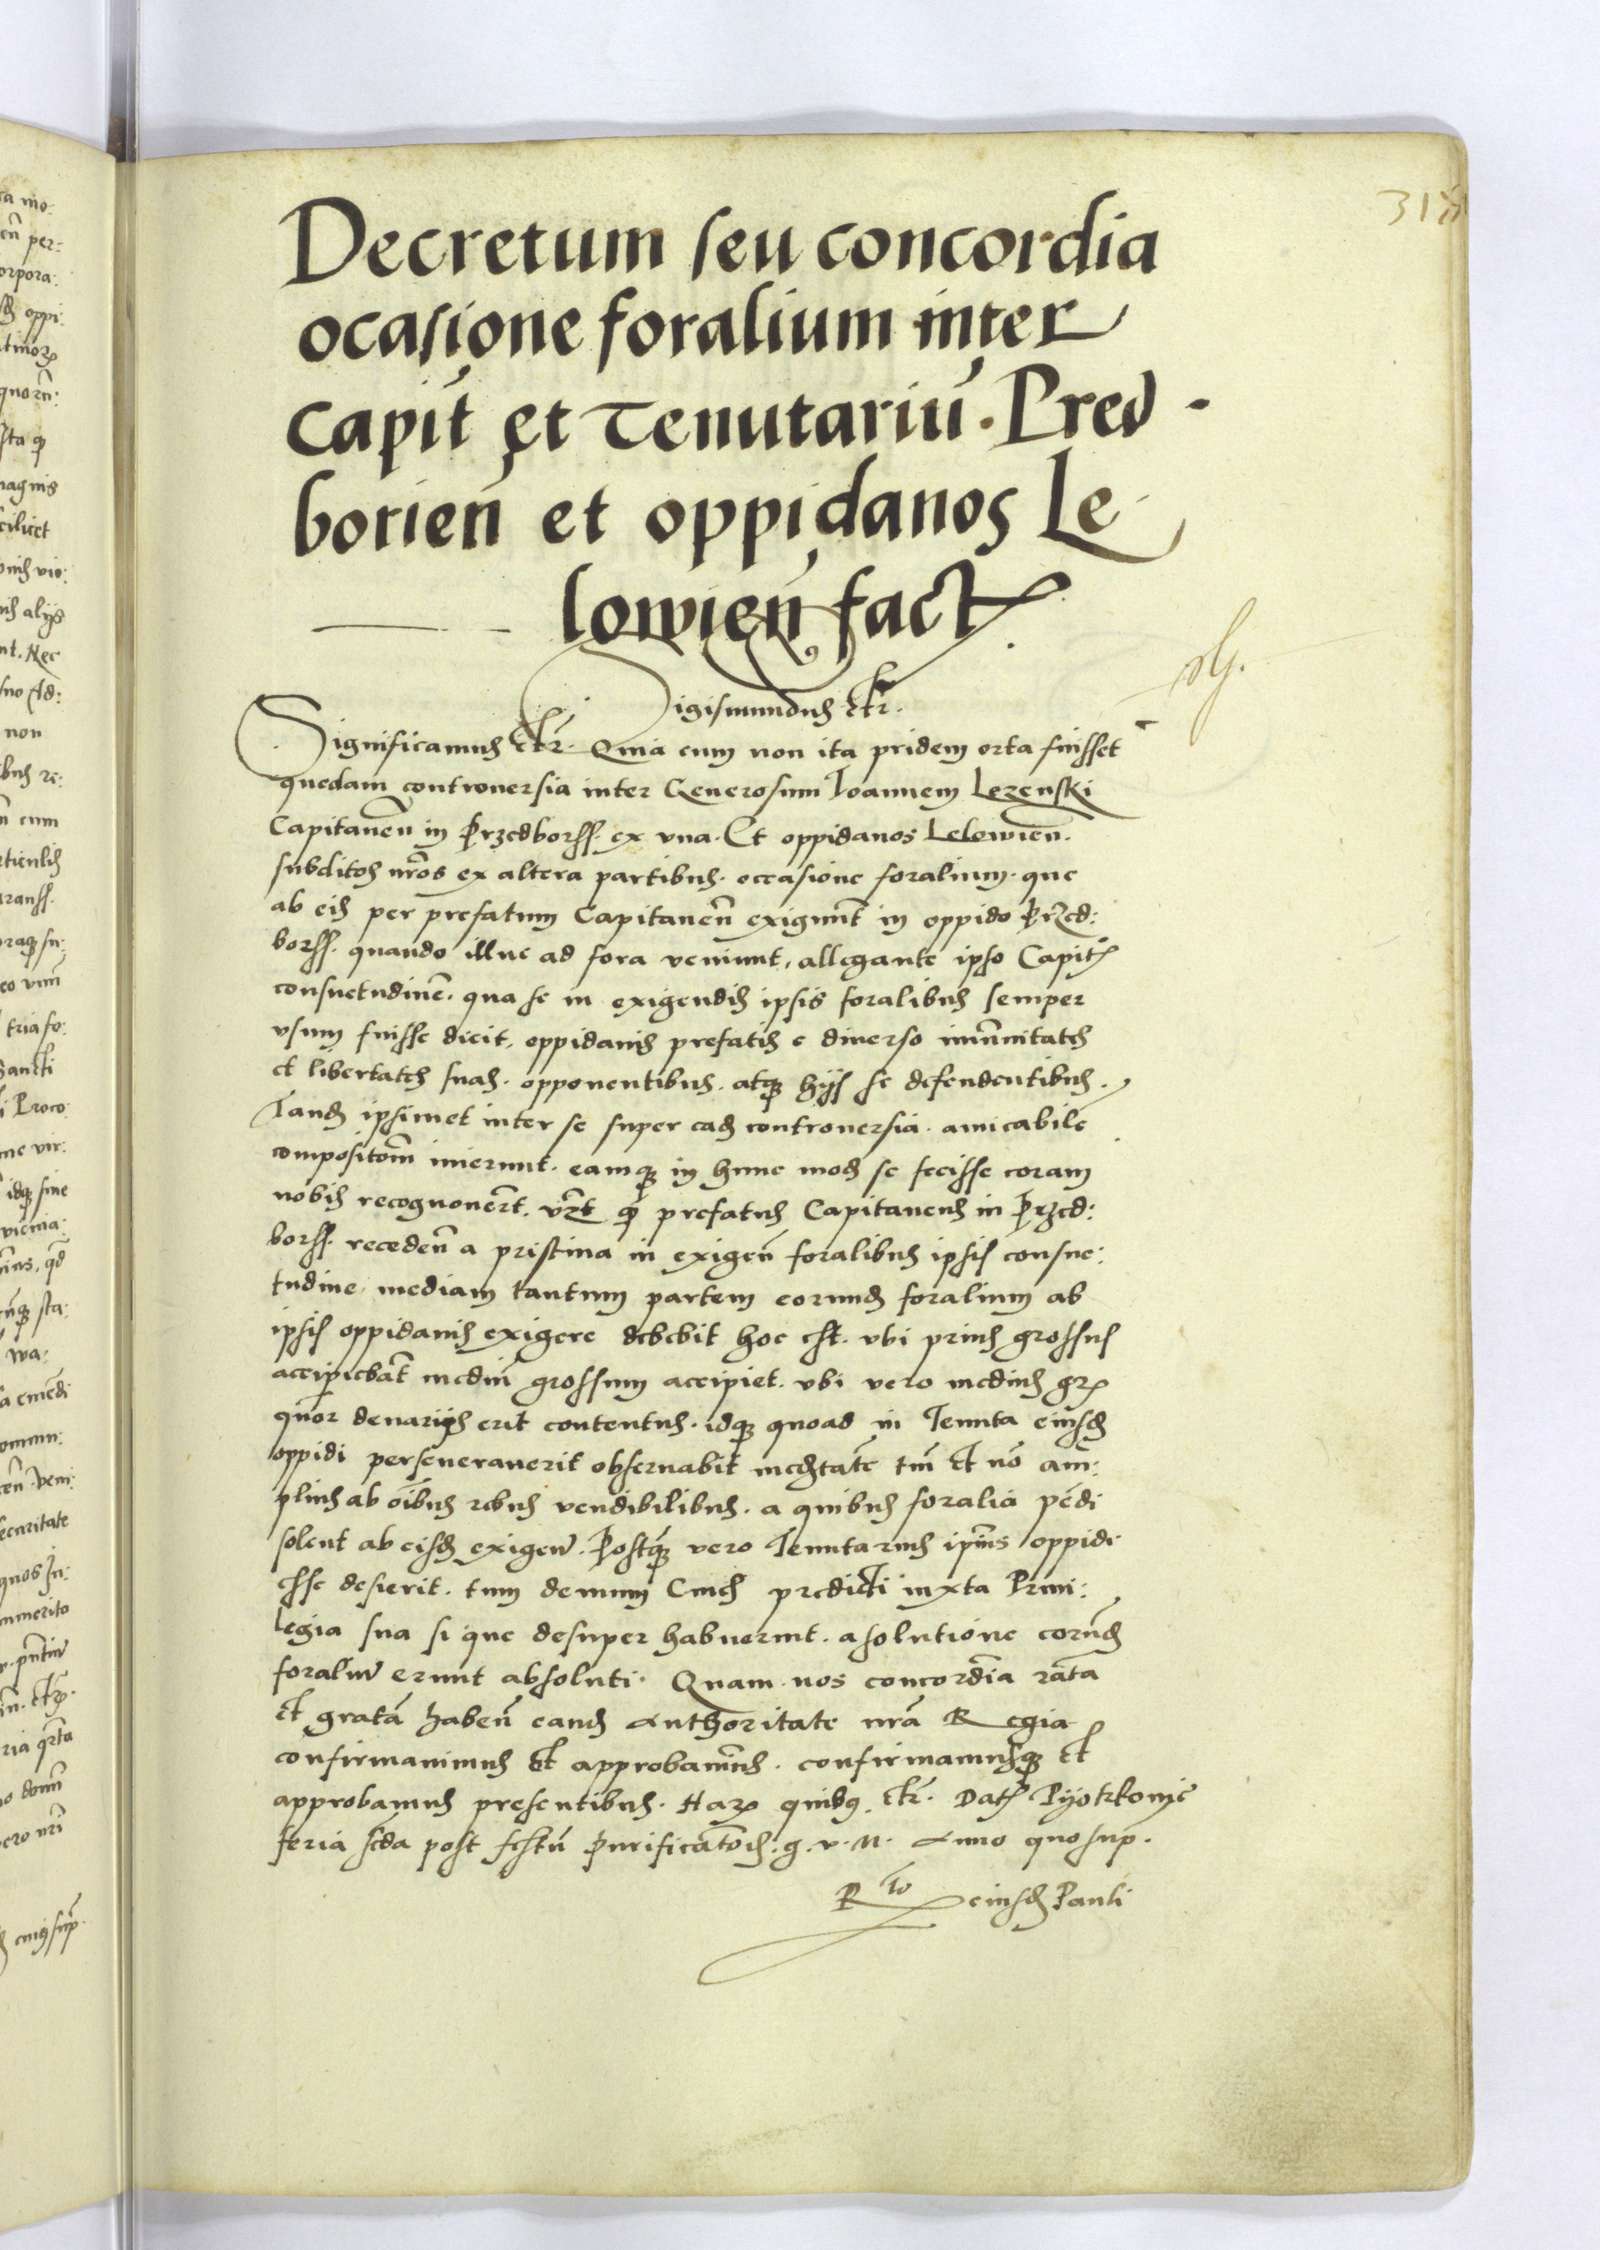 Decretum seu concordia
ocasione foralium inter
Capit̃ et Tenutariũ. Pred
borien̄ et oppidanos Le
lowien̄ fact
Sigismundus etc.
Significamus etc. Quia cum non ita pridem orta fuisset
quedam controversia inter Generosum Joannem Lezenski
Capitaneū in Przedborss. ex una. Et oppidanos Lelowien̄.
subditos nr̄os ex altera partibus. occasione foralium. que
ab eis per prefatum Capitaneū exigunt̄ in oppido Przed:
borss. quando illuc ad fora veniunt, allegante ipso Capit
consuetudinē. qua se in exigendis ipsis foralibus semper
usum fuisse dicit, oppidanis prefatis e diverso imūnitates
et libertates suas. opponentibus. atq hijs se defendentibus.
Tand ipsimet inter se super ead controversia. amicabile
compositōm inierunt. eamq in hunc mod se fecisse coram
nobis recognoverūt. vz̄t q prefatus Capitaneus in Przed:
borss. receden̄ a pristina in exigen̄ foralibus ipsis consue:
tudine mediam tantum partem eorund foralium ab
ipsis oppidanis exigere debebit hoc est. ubi prius grossus
accipiebat̄ mediū grossum accipiet. ubi vero medius gr
quor denarijs erit contentus. idq quoad in Tenuta eiusd
oppidi perseveraverit observabit medietatē tm̄ et nō am̄:
plius ab oībus rebus vendibilibus. a quibus foralia pēdi
solent ab eisd exigen̄. Postq̄ vero Tenutarius ip̄ius oppidi
esse desierit. tum demum Cives predicti iuxta Privi:
legia sua si que desuper habuerint. a solutione eorūd
foraliū erunt absoluti. Quam nos concordiā ratā
et gratā haben̄ eand authoritate nr̄a Regia
confirmavimus et approbavim̄us. confirmamusq et
approbamus presentibus. Har quibus etc. Dat Pijotrkovie
feria scda post festū Purificatōis. g. v. M. Anno quo sup̄.
Rto eiusd Pauli